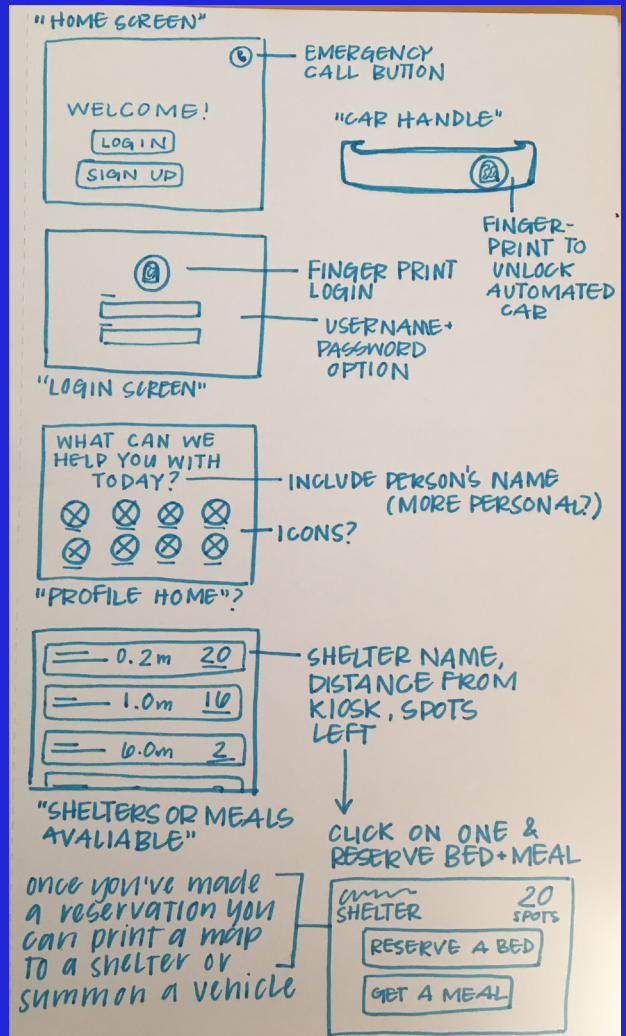 "HOME SCREEN"
EMERGENCY
CALL BUTTON
WELCOME!
LOGIN
SIGN UP
"CAR HANDLE"
FINGER-
PRINT TO
UNLOCK
AUTOMATED
CAR
FINGER PRINT
LOGIN
USERNAME+
PASSWORD
OPTION
"LOGIN SCREEN"
WHAT CAN WE
HELP YOU WITH
TODAY?
INCLUDE PERSON'S NAME
(MORE PERSONAL?)
ICONS?
"PROFILE HOME"?
0.2m 20
1.0m 16
6.0m 2
SHELTER NAME,
DISTANCE FROM
KIOSK, SPOTS
LEFT
"SHELTERS OR MEALS
AVALIABLE"
CLICK ON ONE &
RESERVE BED+MEAL
once you've made
a reservation you
can print a map
to a shelter or
summon a vehicle
SHELTER
20
SPOTS
RESERVE A BED
GET A MEAL